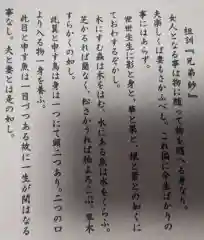 祖訓『兄弟鈔』
女人となる事は物に随って物を随へる身なり。
夫楽しくば妻もさかふべし。これ偏に今生ばかりの
事にはあらず。
世世生生に影と身と、華と果と、根と葉との如くに
ておわするぞかし。
木にすむ虫は木をはむ、水にある魚は水をくらふ。
芝かるれば蘭なく、松さかうれば柏よろこぶ。草木
すらかくの如し。
比翼と申す鳥は身は一つにて頭二つあり。二つの口
より入る物一身を養ふ。
比目と申す魚は一目づつある故に一生が間はなる
事なし。夫と妻とは是の如し。